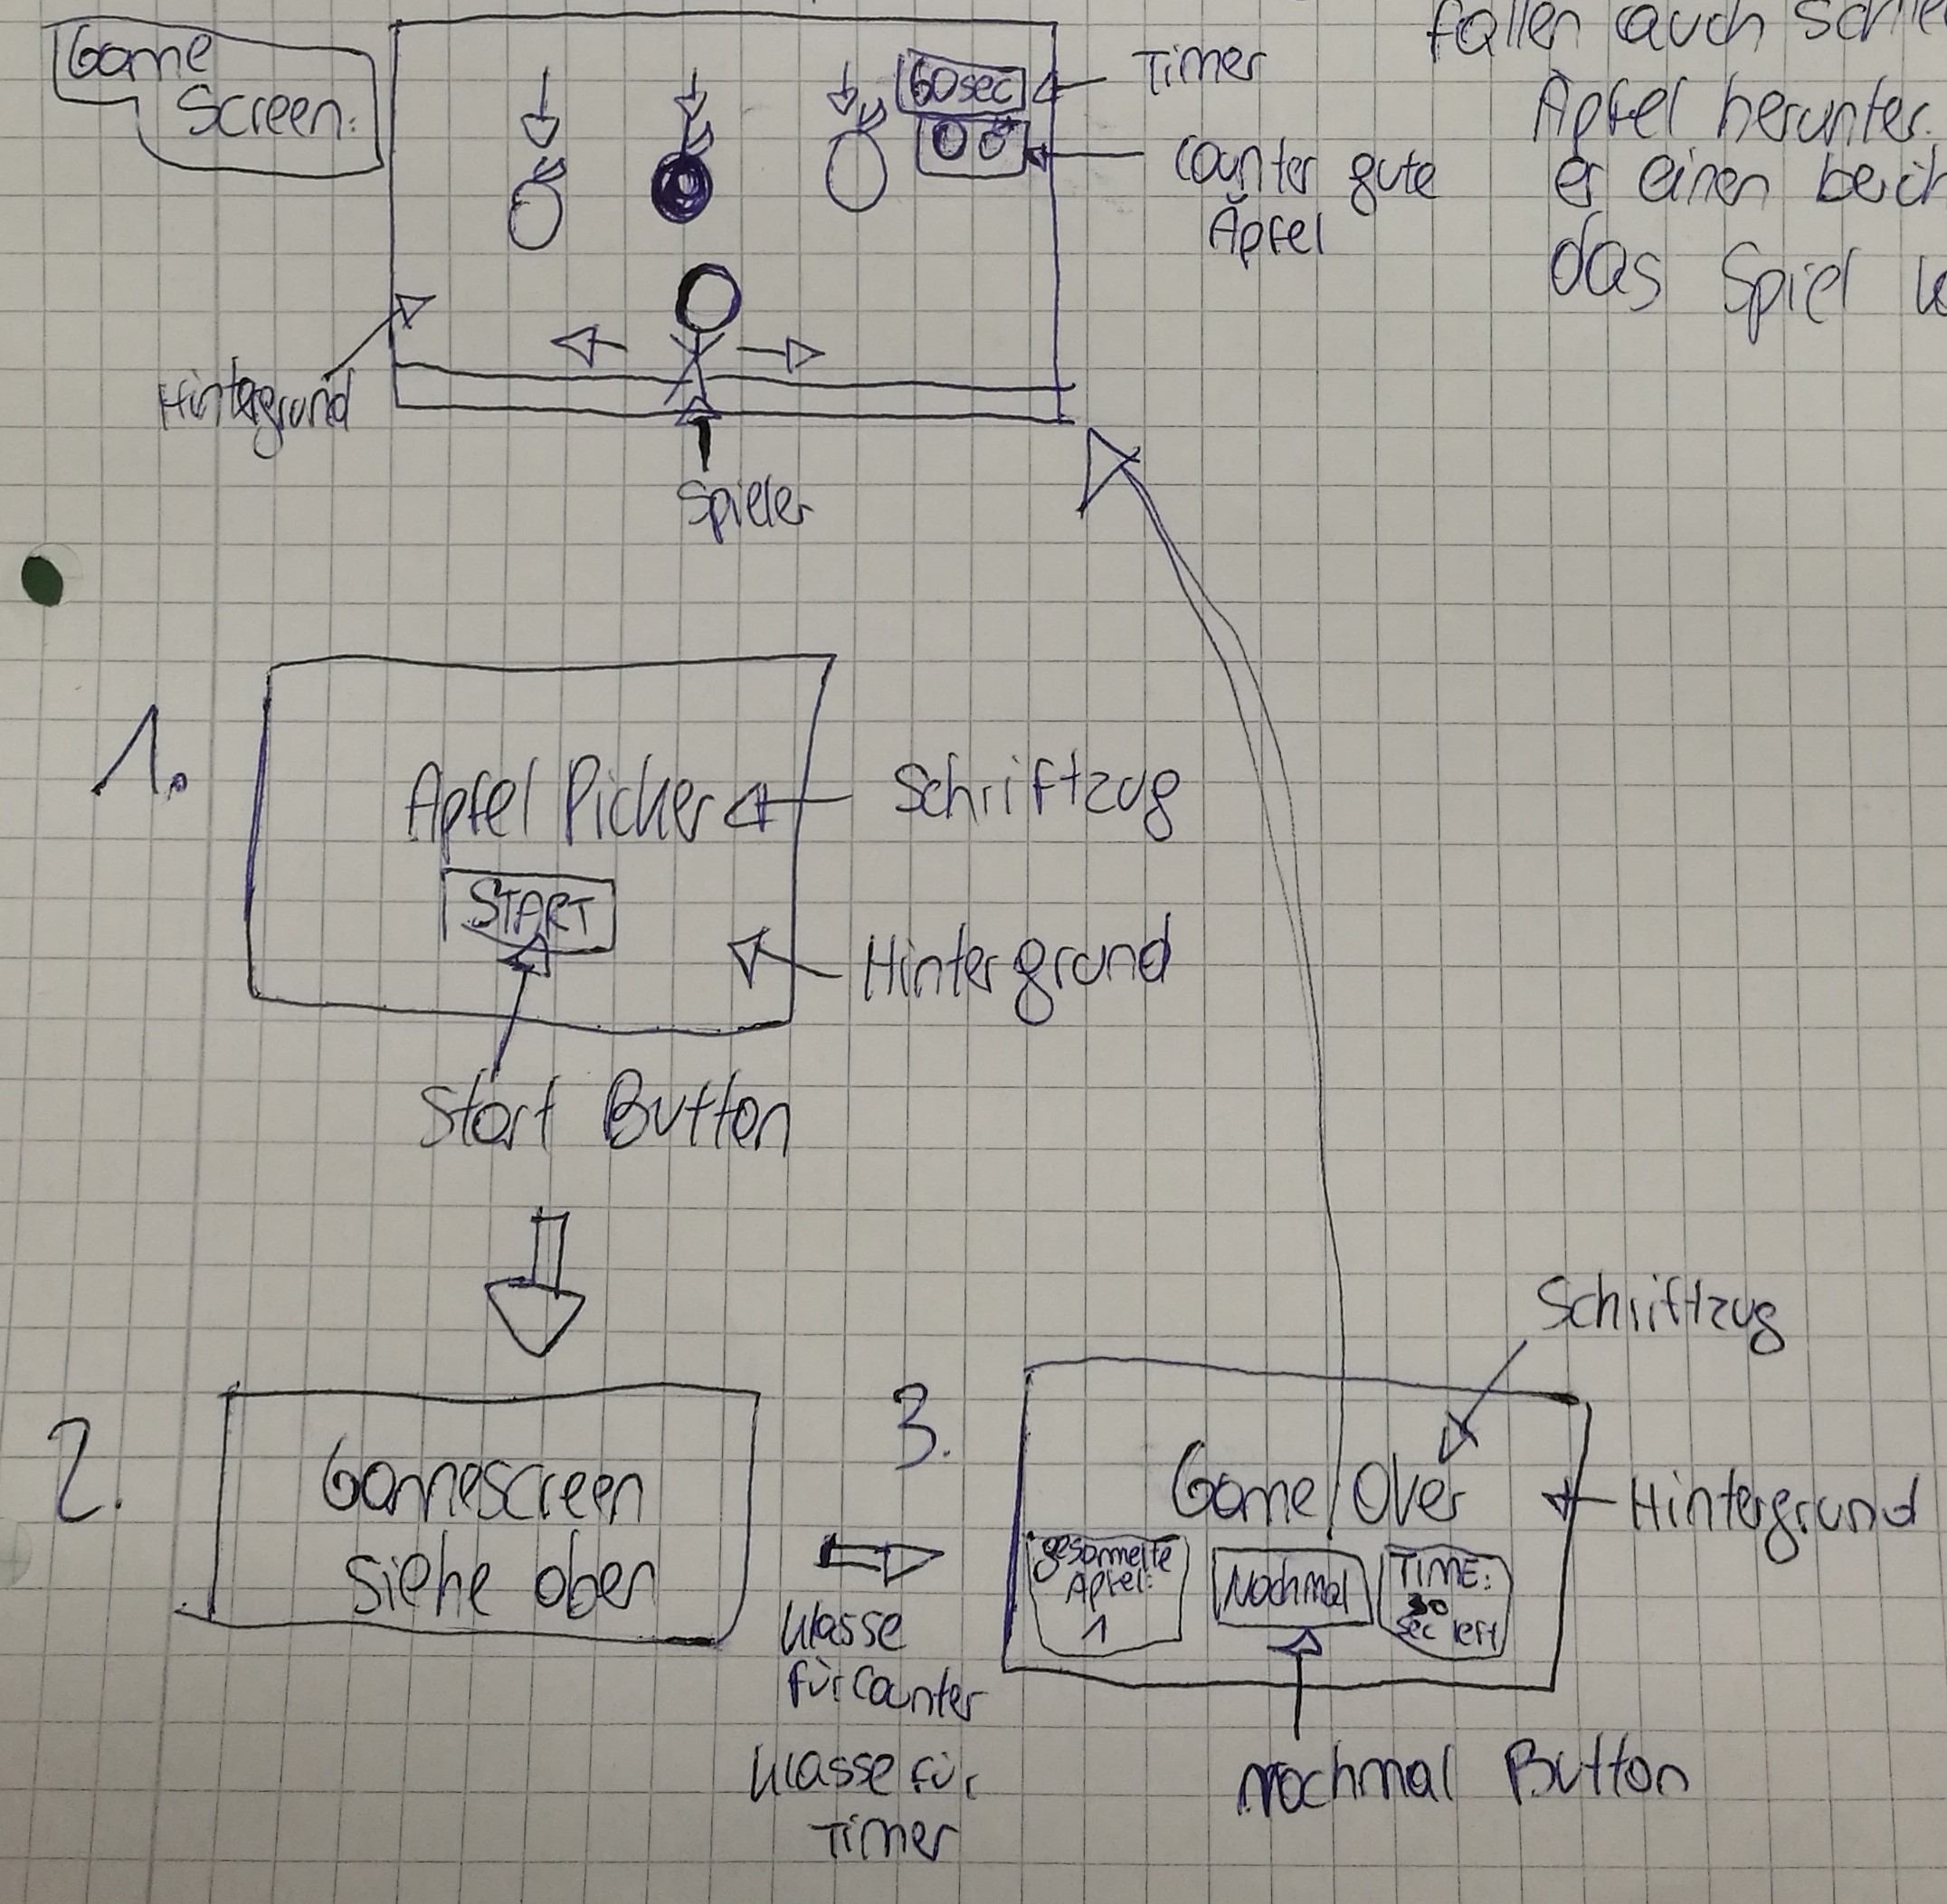 Game
Screen:
60sec
Timer
Counter gute
Äpfel
Hintergrund
Spieler
fallen auch
Äpfel herunter.
er einen
das Spiel
1.
Apfel Picker
Schriftzug
START
Hintergrund
Start Button
2.
Gamescreen
siehe oben
Klasse
für Counter
Klasse für
Timer
3.
Schriftzug
Game Over
Hintergrund
gesammelte
Äpfel:
1
Nochmal
TIME:
30
sec left
nochmal Button